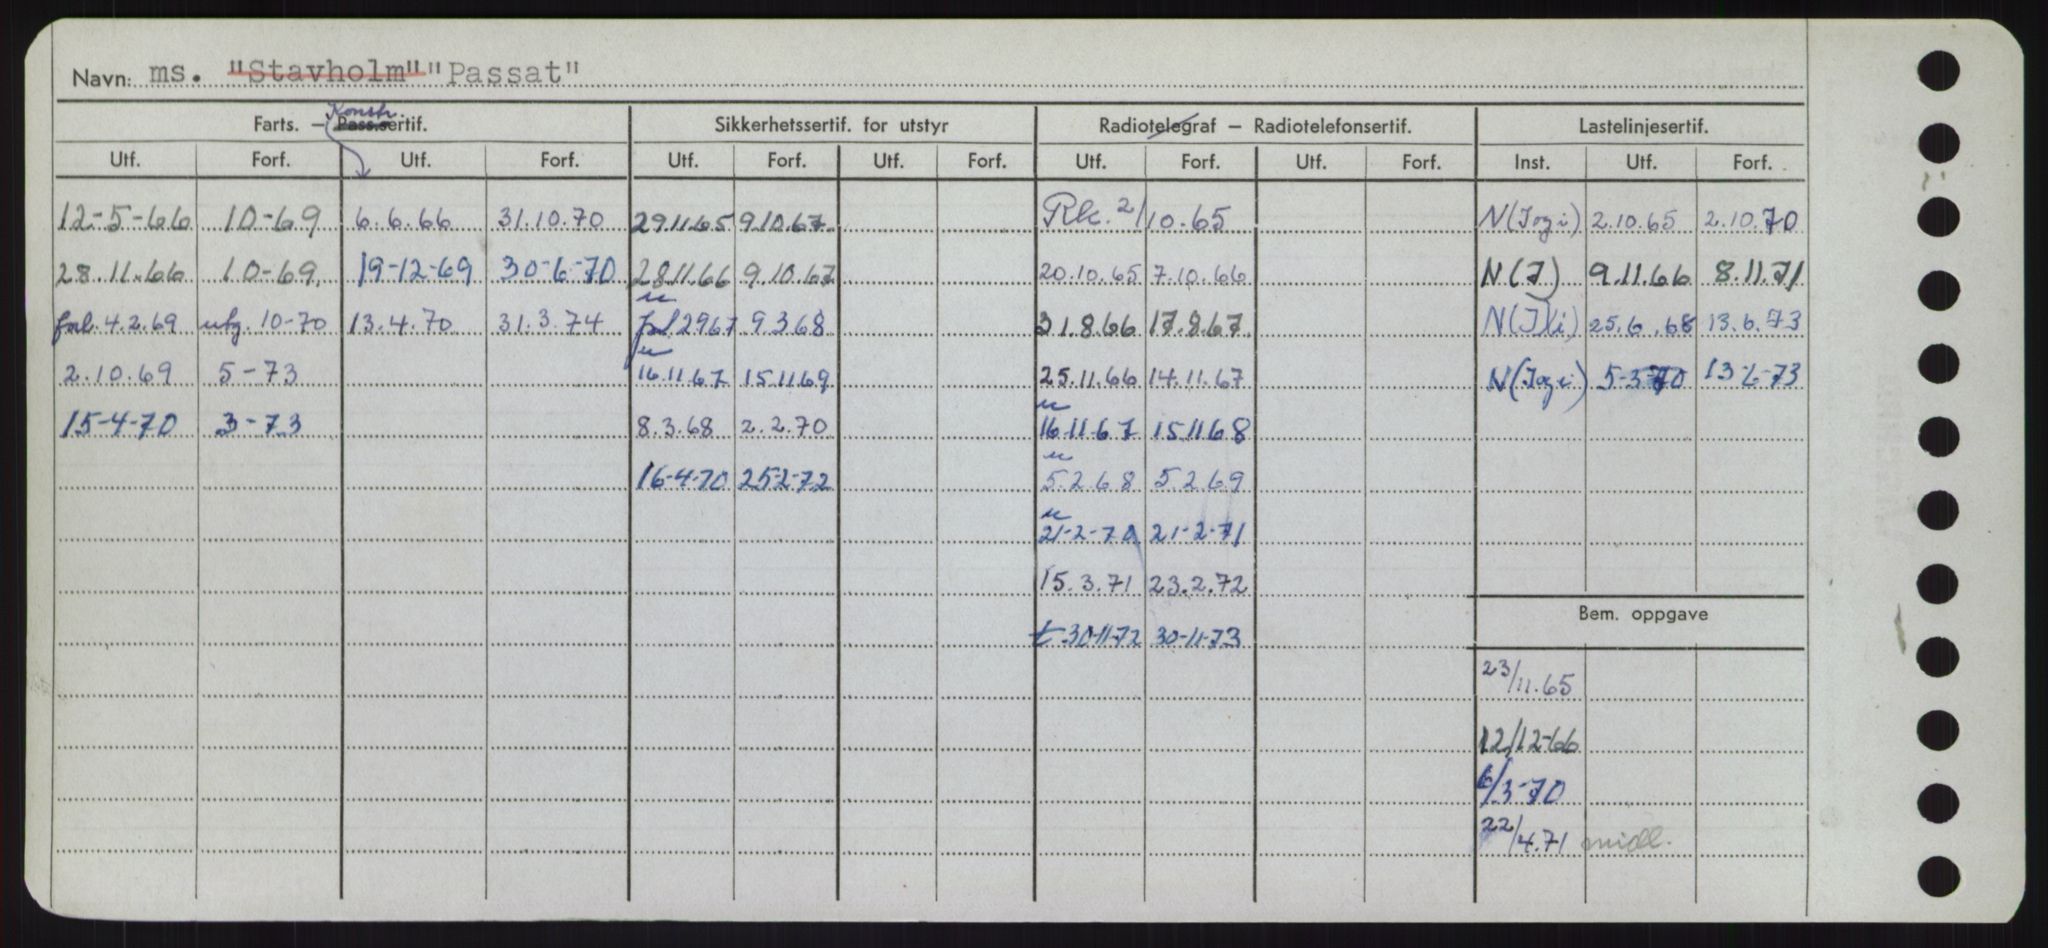 Navn: ms. "Stavholm" "Passat"
Konstr.
Farts. – Pass.sertif. Sikkerhetssertif. for utstyr Radiotelegraf – Radiotelefonsertif. Lastelinjesertif.
Utf. Forf. Utf. Forf. Utf. Forf. Utf. Forf. Utf. Forf. Utf. Forf. Inst. Utf. Forf.
12-5-66 10-69 6.6.66 31.10.70 29.11.65 9.10.67 Rk. 2/10.65 N(Iogi) 2.10.65 2.10.70
28.11.66 10-69. 19-12-69 30-6-70 28.11.66 9.10.67 20.10.65 7.10.66 N(I) 9.11.66 8.11.71
forl. 4.2.69 utg. 10-70 13.4.70 31.3.74 forl 2967 9368 31.8.66 17.8.67 N(I)(i) 25.6.68 13.6.73
2.10.69 5-73 16.11.67 15.11.69 25.11.66 14.11.67 N(Iogi) 5-3-70 13-6-73
15-4-70 3-73 8.3.68 2.2.70 16.11.67 15.11.68
16-4-70 25-2-72 5.2.68 5.2.69
21-2-70 21-2-71
15.3.71 23.2.72
Bem. oppgave
t. 30-11-72 30-11-73
23/11.65
12/12-66
6/3-70
22/4.71 midl.